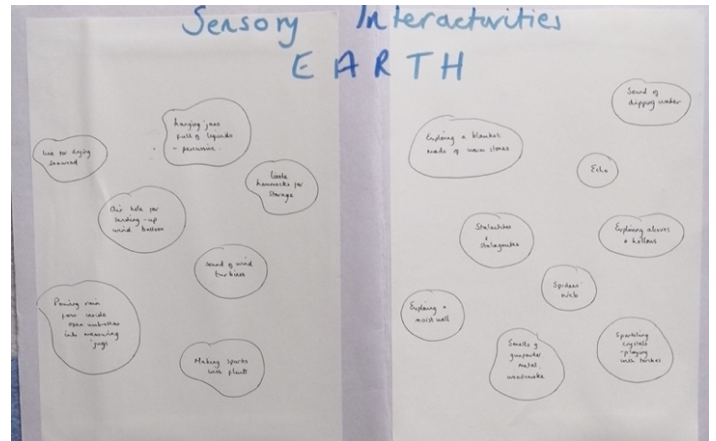 Sensory Interactivities
EARTH
Line for drying
seaweed
hanging jars
full of liquids
- percussion.
Little
hammocks for
storage
Air hole for
sending-up
wind balloon
Sound of wind
turbines
Pouring rain
from inside
open umbrellas
into measuring
jugs
Making sparks
with
Sound of
dripping water
Exploring a blanket
made of warm stones
Echo
Stalactites
+
stalagmites
Exploring alcoves
+ hollows
Spiders
web
Exploring a
moist wall
Smells of
gunpowder
metal,
woodsmoke
Sparkling
crystals
- playing
with torches